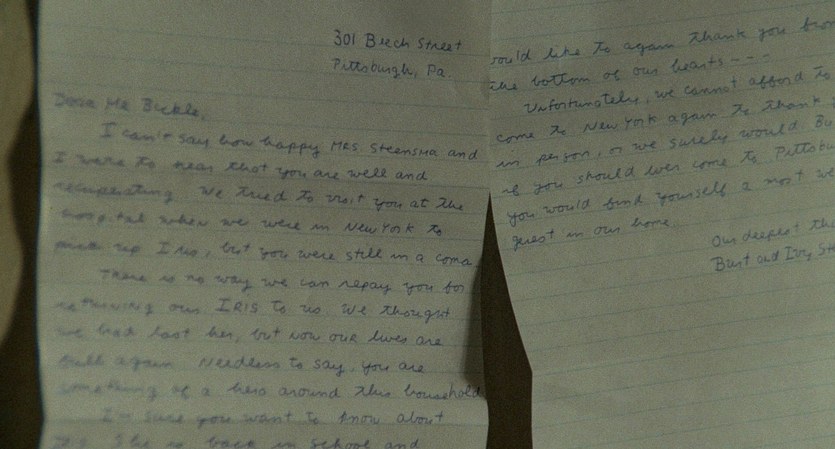 301 Beech Street
Pittsburgh, Pa.
Dear Mr Bickle,
I can't say how happy Mrs. Steensma and
I were to hear that you are well and
recuperating. We tried to visit you at the
hospital when we were in New York to
pick up Iris, but you were still in a coma.
There is no way we can repay you for
returning our IRIS to us. We thought
we had lost her, but now our lives are
full again. Needless to say, you are
something of a hero around this household.
I'm sure you want to know about
She is back in school and
would like to again thank you from
the bottom of our hearts - - -
Unfortunately, we cannot afford to
come to New York again to thank
in person, or we surely would. Bu
if you should ever come to Pittsbu
you would find yourself a most we
guest in our home.
Our deepest tha
Burt and Ivy St